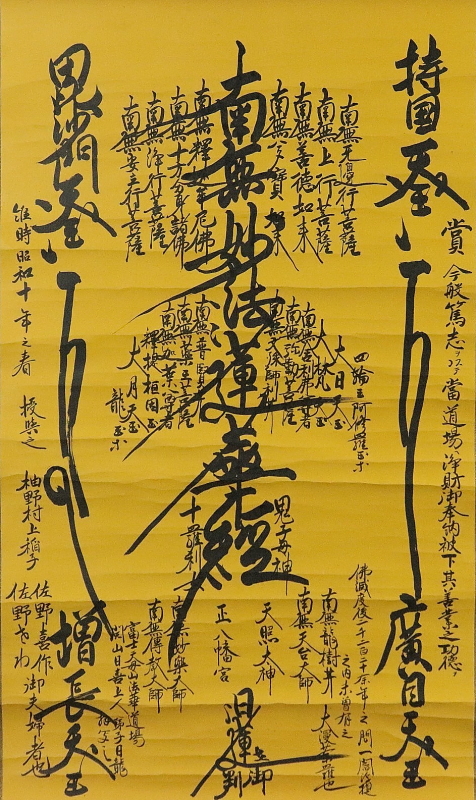 持國天王
賞 今般篤志ヲ以テ當道場へ淨財御奉納被下其善業之功徳
廣目天王
南無無邊行菩薩
南無上行菩薩
南無善徳如来
南無多寶如来
南無妙法蓮華經
南無釋迦牟尼佛
南無十方分身諸佛
南無淨行菩薩
南無安立行菩薩
毘沙門天王
四輪王 阿修羅王等
大日天王
大梵天王
南無舎利弗尊者
南無弥勒菩薩
南無文殊師利
南無普賢
南無薬王菩薩
南無迦葉尊者
釋提桓因王
大月天王
龍王等
鬼子母神
十羅刹女
佛滅度後二千二百三十余年之間一閻浮提
之内未曾有之
大漫荼羅也
南無龍樹井
南無天台大師
天照太神
正八幡宮
南無妙樂大師
南無傳教大師
日蓮 在御判
富士
開山日善上人弟子日龍
増長天王
維時昭和十年之春 授与之
柚野村上稲子
佐野喜作
佐野きわ
御夫婦者也